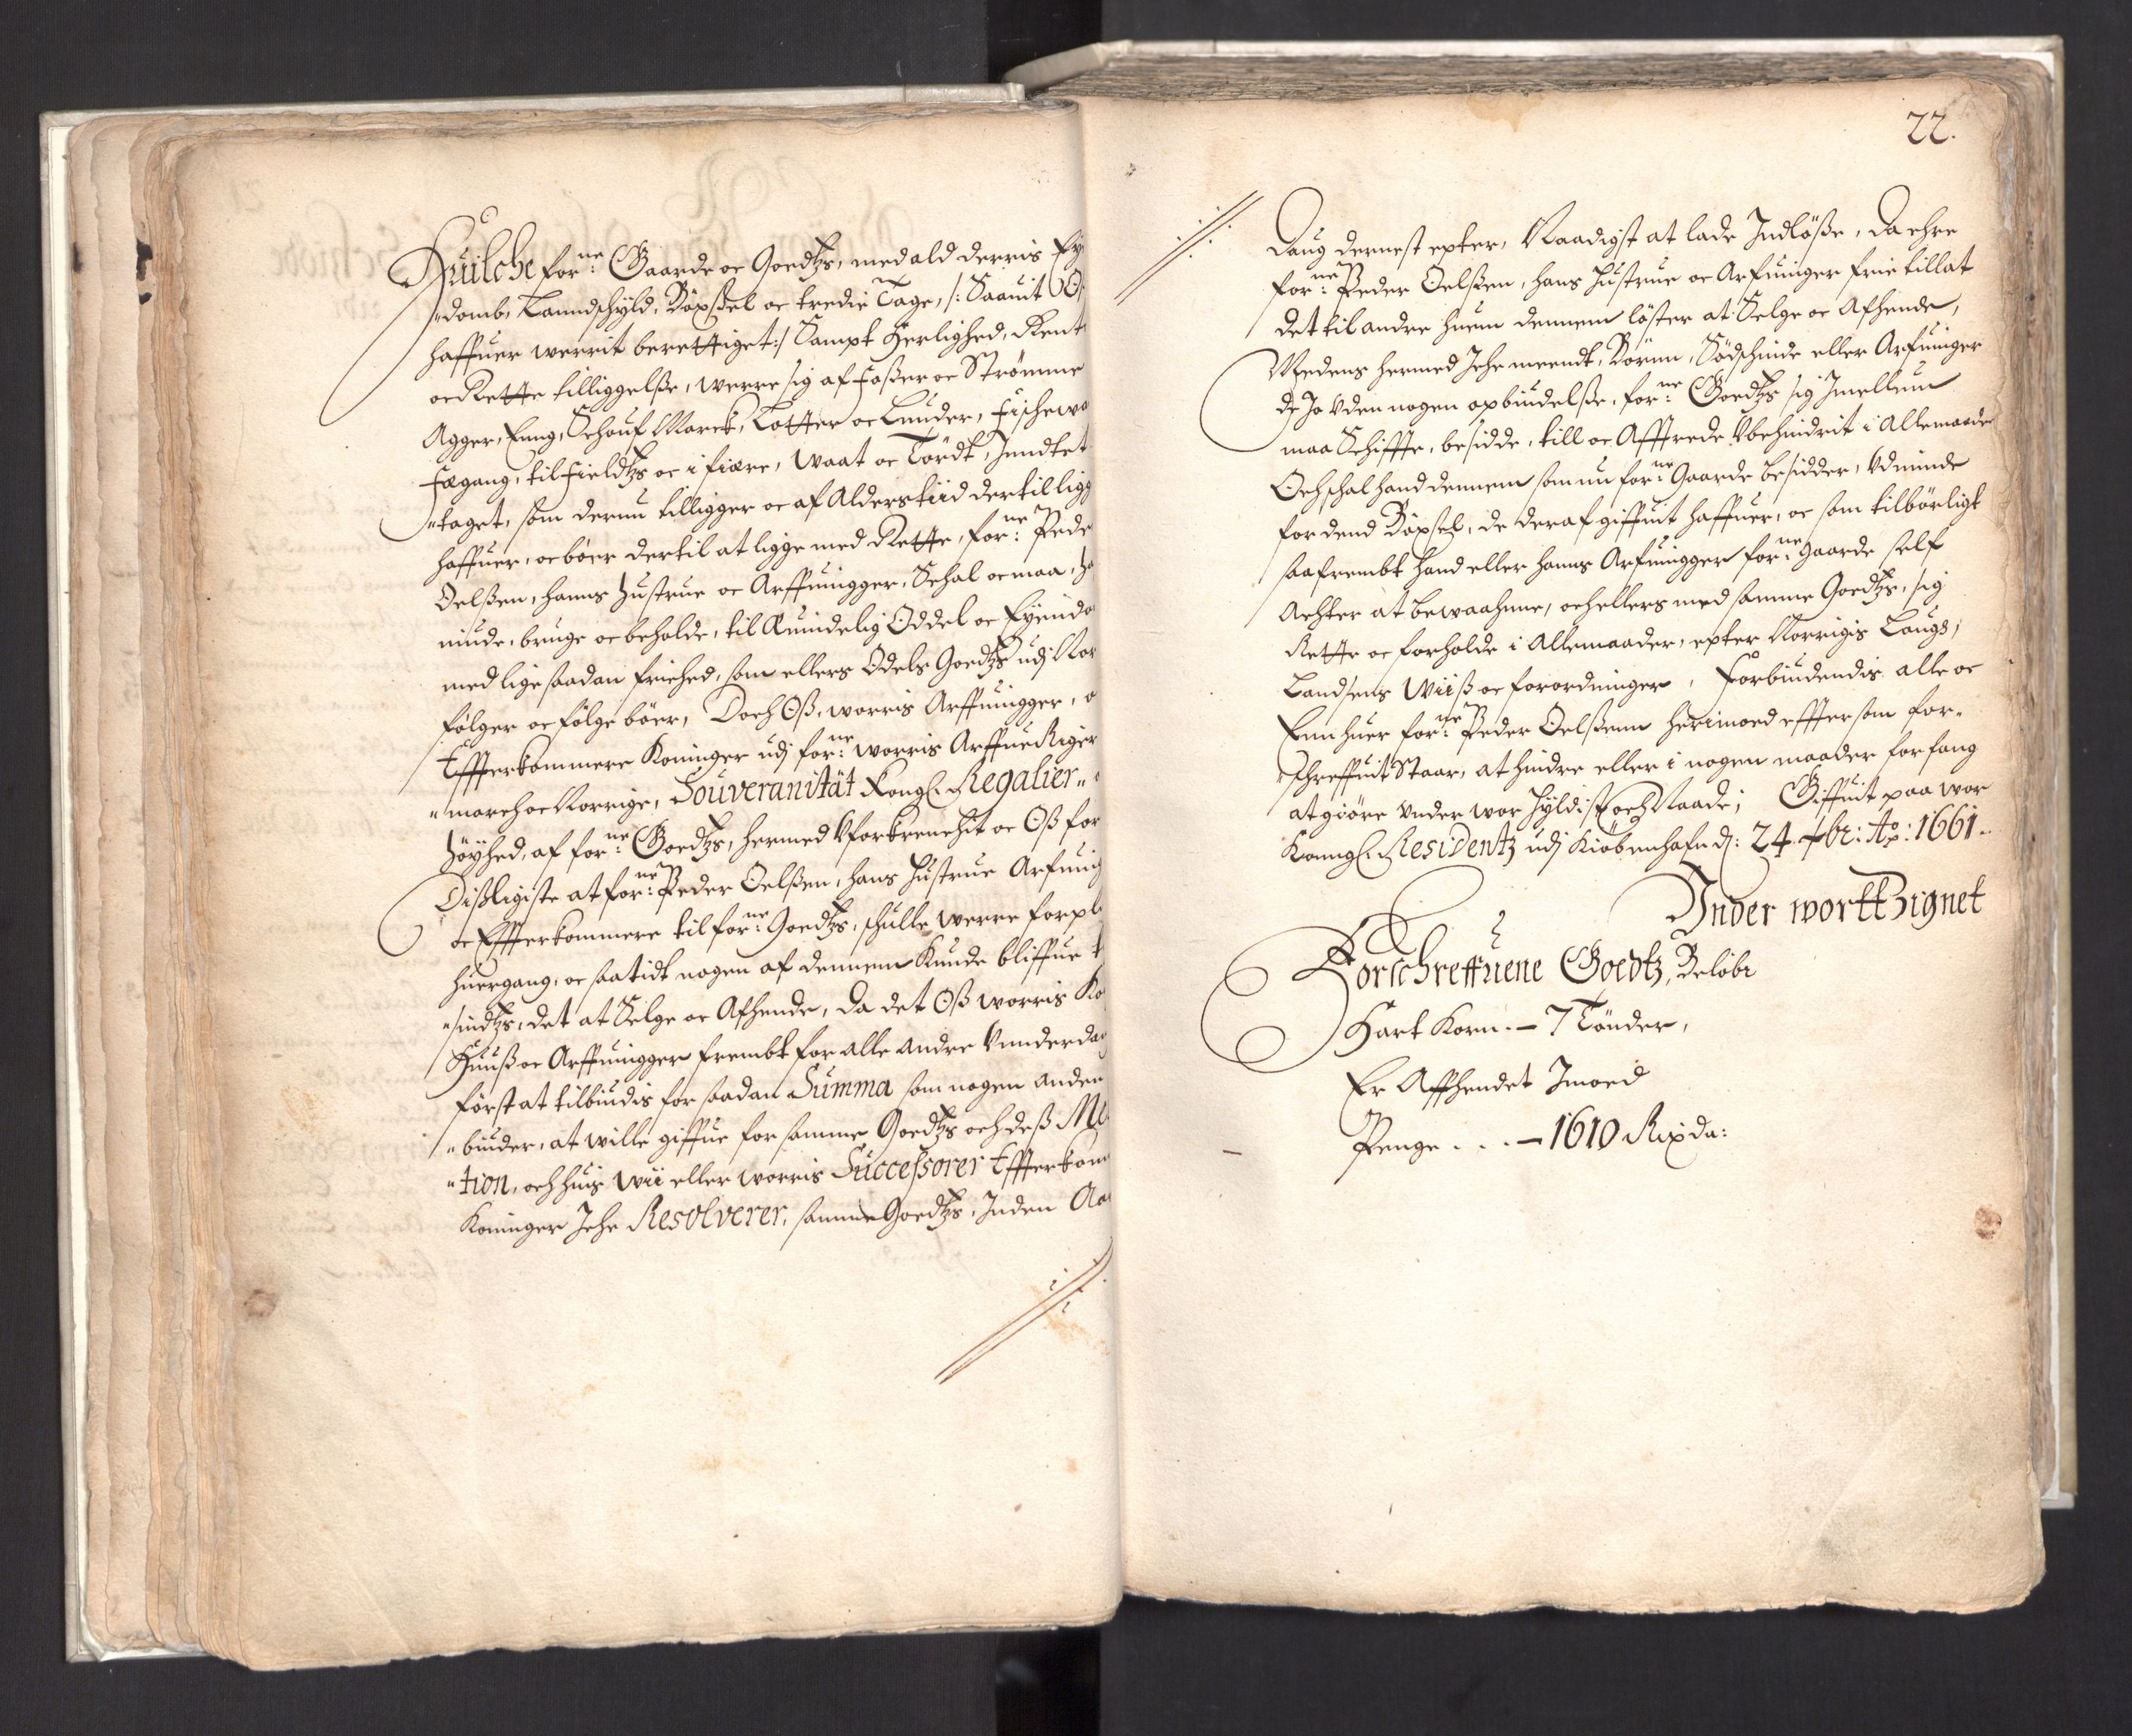 Huilche for:ne Gaarde oc Goedtzs, med ald derris Ey
„domb, Lanndschyld, Böxßel oc tredie Tage, /: Saauit
haffuer werrit berettiget :/ Sampt Herlighed, Rent
oc Rette tilliggelße, werre sig af Foßer oc Strömme
Agger, Enng, Schouf Marck, Lotter oc Lunder,
Fægang, til Fieldtzs oc i fiære, Waat oc Tördt, Inndtet
„taget, som der nu tilligger oc af Alders tiid der til ligg
haffuer, oc böer der til at ligge med Rette, for:ne Pede
Oelßen, hanns Hustrue oc Arffuingger, Schal oc maa,
niude, bruge oc beholde, til Æuindelig Oddel oc Eyendo
med lige saadan friehed, som ellers Odels Goedtzs udj Nor
følger oc følge böer, Doch Oß, worris Arffuingger, o
Effterkommere Koninger udj for:ne worris Arffue Riger
„march oc Norrige, Souveranität Kongl. Regalier„
Höyhed, af for:ne Goedtzs, hermed Uforkrenchit oc Oß for
Dißligiste at for:ne Peder Oelßen, hans Hustrue Arfuing
oc Effterkommere til for:ne Goedtzs, schulle werre forpl
huergang, oc saa tidt nogen af dennem Kunde bliffue
„sindtzs, det at Selge oc Afhende, Da det Oß worris Ko
Huuß oc Arffuingger frembt for alle andre Vnnderda
först at tilbiudis for saadan Summa som nogen anden
„biuder, at wille giffue for samme Goedtzs och deß Me
„tion, och huis wii eller worris Successorer Effterkom
Koninger Iche Resolverer, samme Goedtzs, Inden Aa
22.
Daug dernest epter, Naadigst at lade Indlöße, Da ehre
for:ne Peder Oelßen, hans Hustrue oc Arfuinger frie tillat
det til andre huem dennem löster at Selge oc Afhende,
Medens hermed Iche meendt, Börnn, Södschinde eller Arfuinger
de Jo Uden nogen opbiudelße, for:ne Goedtzs sig Imellum
maa Schiffte, besidde, till oc Afftrede Ubehindrit i Alle maader
Och schal hand dennem som nu for:ne Gaarde besidder, Vdminde
for dend Böxsel, de deraf giffuit haffuer, oc som tilbörligt
saafrembt hand eller hanns Arfuingger for:ne Gaarde self
Achter at bewaahnne, och ellers med samme Goedtzs, sig
Rette oc forholde i Alle maader, epter Norrigis Laugs,
Landsens Wiiß oc forordninger, Forbiudendis alle oc
Enn huer for:ne Peder Oelßenn herimoed effter som for„
„schreffuit Staar, at hindre eller i nogen maader forfang
at giöre under wor Hyldist och Naade; Giffuit paa wor
Konngl. Residentz udj Kiöbenhafn d: 24. 7br: Ao: 1661.
Under wortt Zignet
Forschreffuene Goedtz, Belöbr
Hart Korn. – 7 Tönder,
Er Affhendet Imoed
Penge . . . – 1610 Rixda: